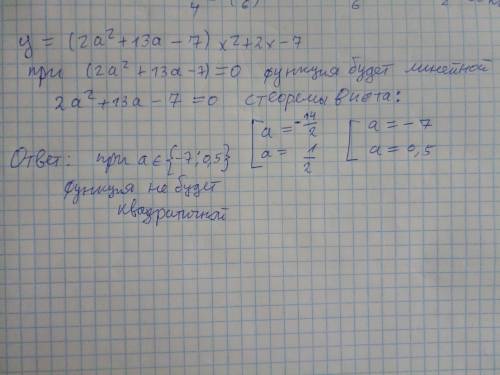 4 (6) 6 2
y = (2a² + 13a - 7) x² + 2x - 7
при (2a² + 13a - 7) = 0 функция будет линейной
2a² + 13a - 7 = 0 с теоремы Виета:
[ a = -14/2 [ a = -7
a = 1/2 a = 0,5
Ответ: при a ∈ {-7; 0,5}
функция не будет
квадратичной